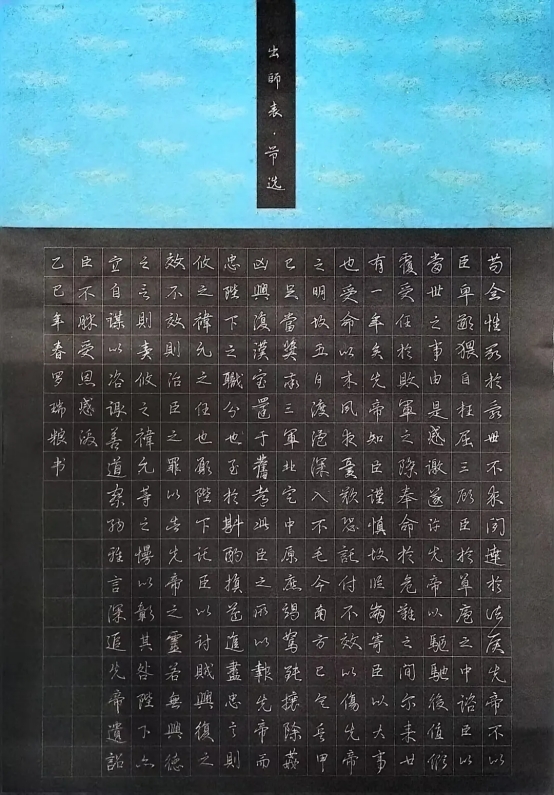 出師表·节选
苟全性命於亂世不求闻達於诸侯先帝不以
臣卑鄙猥自枉屈三顾臣於草庐之中谘臣以
當世之事由是感激遂许先帝以驱馳後值倾
覆受任於敗軍之際奉命於危難之間尔来廿
有一年矣先帝知臣謹慎故临崩寄臣以大事
也受命以来夙夜憂歎恐託付不效以傷先帝
之明故五月渡泸深入不毛今南方已定兵甲
已足當奬率三軍北定中原庶竭駑鈍攘除姦
凶興復漢室還于舊都此臣之所以報先帝而
忠陛下之職分也至於斟酌損益進盡忠言則
攸之禕允之任也願陛下託臣以討賊興復之
效不效則治臣之罪以告先帝之靈若無興德
之言則責攸之禕允等之慢以彰其咎陛下亦
宜自謀以咨諏善道察纳雅言深追先帝遺詔
臣不勝受恩感激
乙巳年春罗瑞书